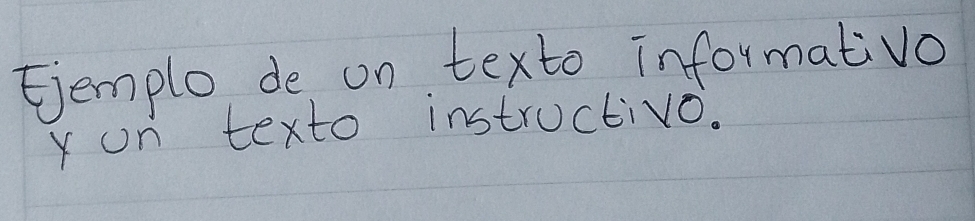 Ejemplo de un texto informativo
y un texto instructivo.